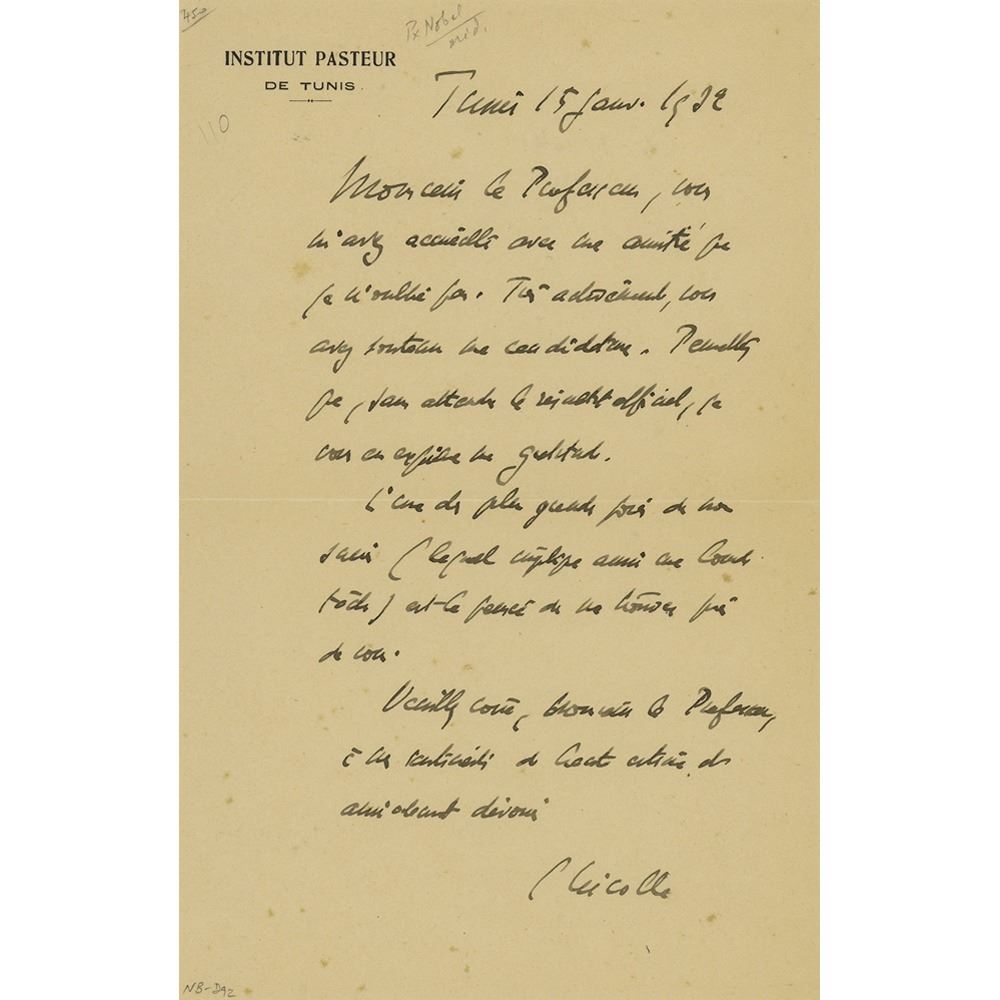 450
Px Nobel
méd.
INSTITUT PASTEUR
DE TUNIS
110
Tunis 15 janv. 1932
Monsieur le Professeur, vous
m'avez accueilli avec une amitié que
je n'oublie pas. Très activement, vous
avez soutenu ma candidature. Permettez
que, sans attendre le résultat officiel, je
vous en exprime ma gratitude.
L'une des plus grandes joies de mon
succès (lequel implique aussi une
) est la pensée de me trouver près
de vous.
Veuillez croire, Monsieur le Professeur,
à mes sentiments de haute estime et
dévoués
C Nicolle
NB-D92